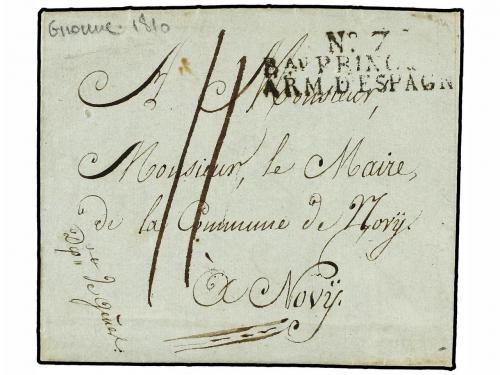 Gironne. 1810
No. 7
Bau PRINC.
ARM. D'ESPAGN
A Monsieur,
Monsieur, le Maire,
de la Commune de Novÿ.
à Novÿ.
11
Dépt de Gènes